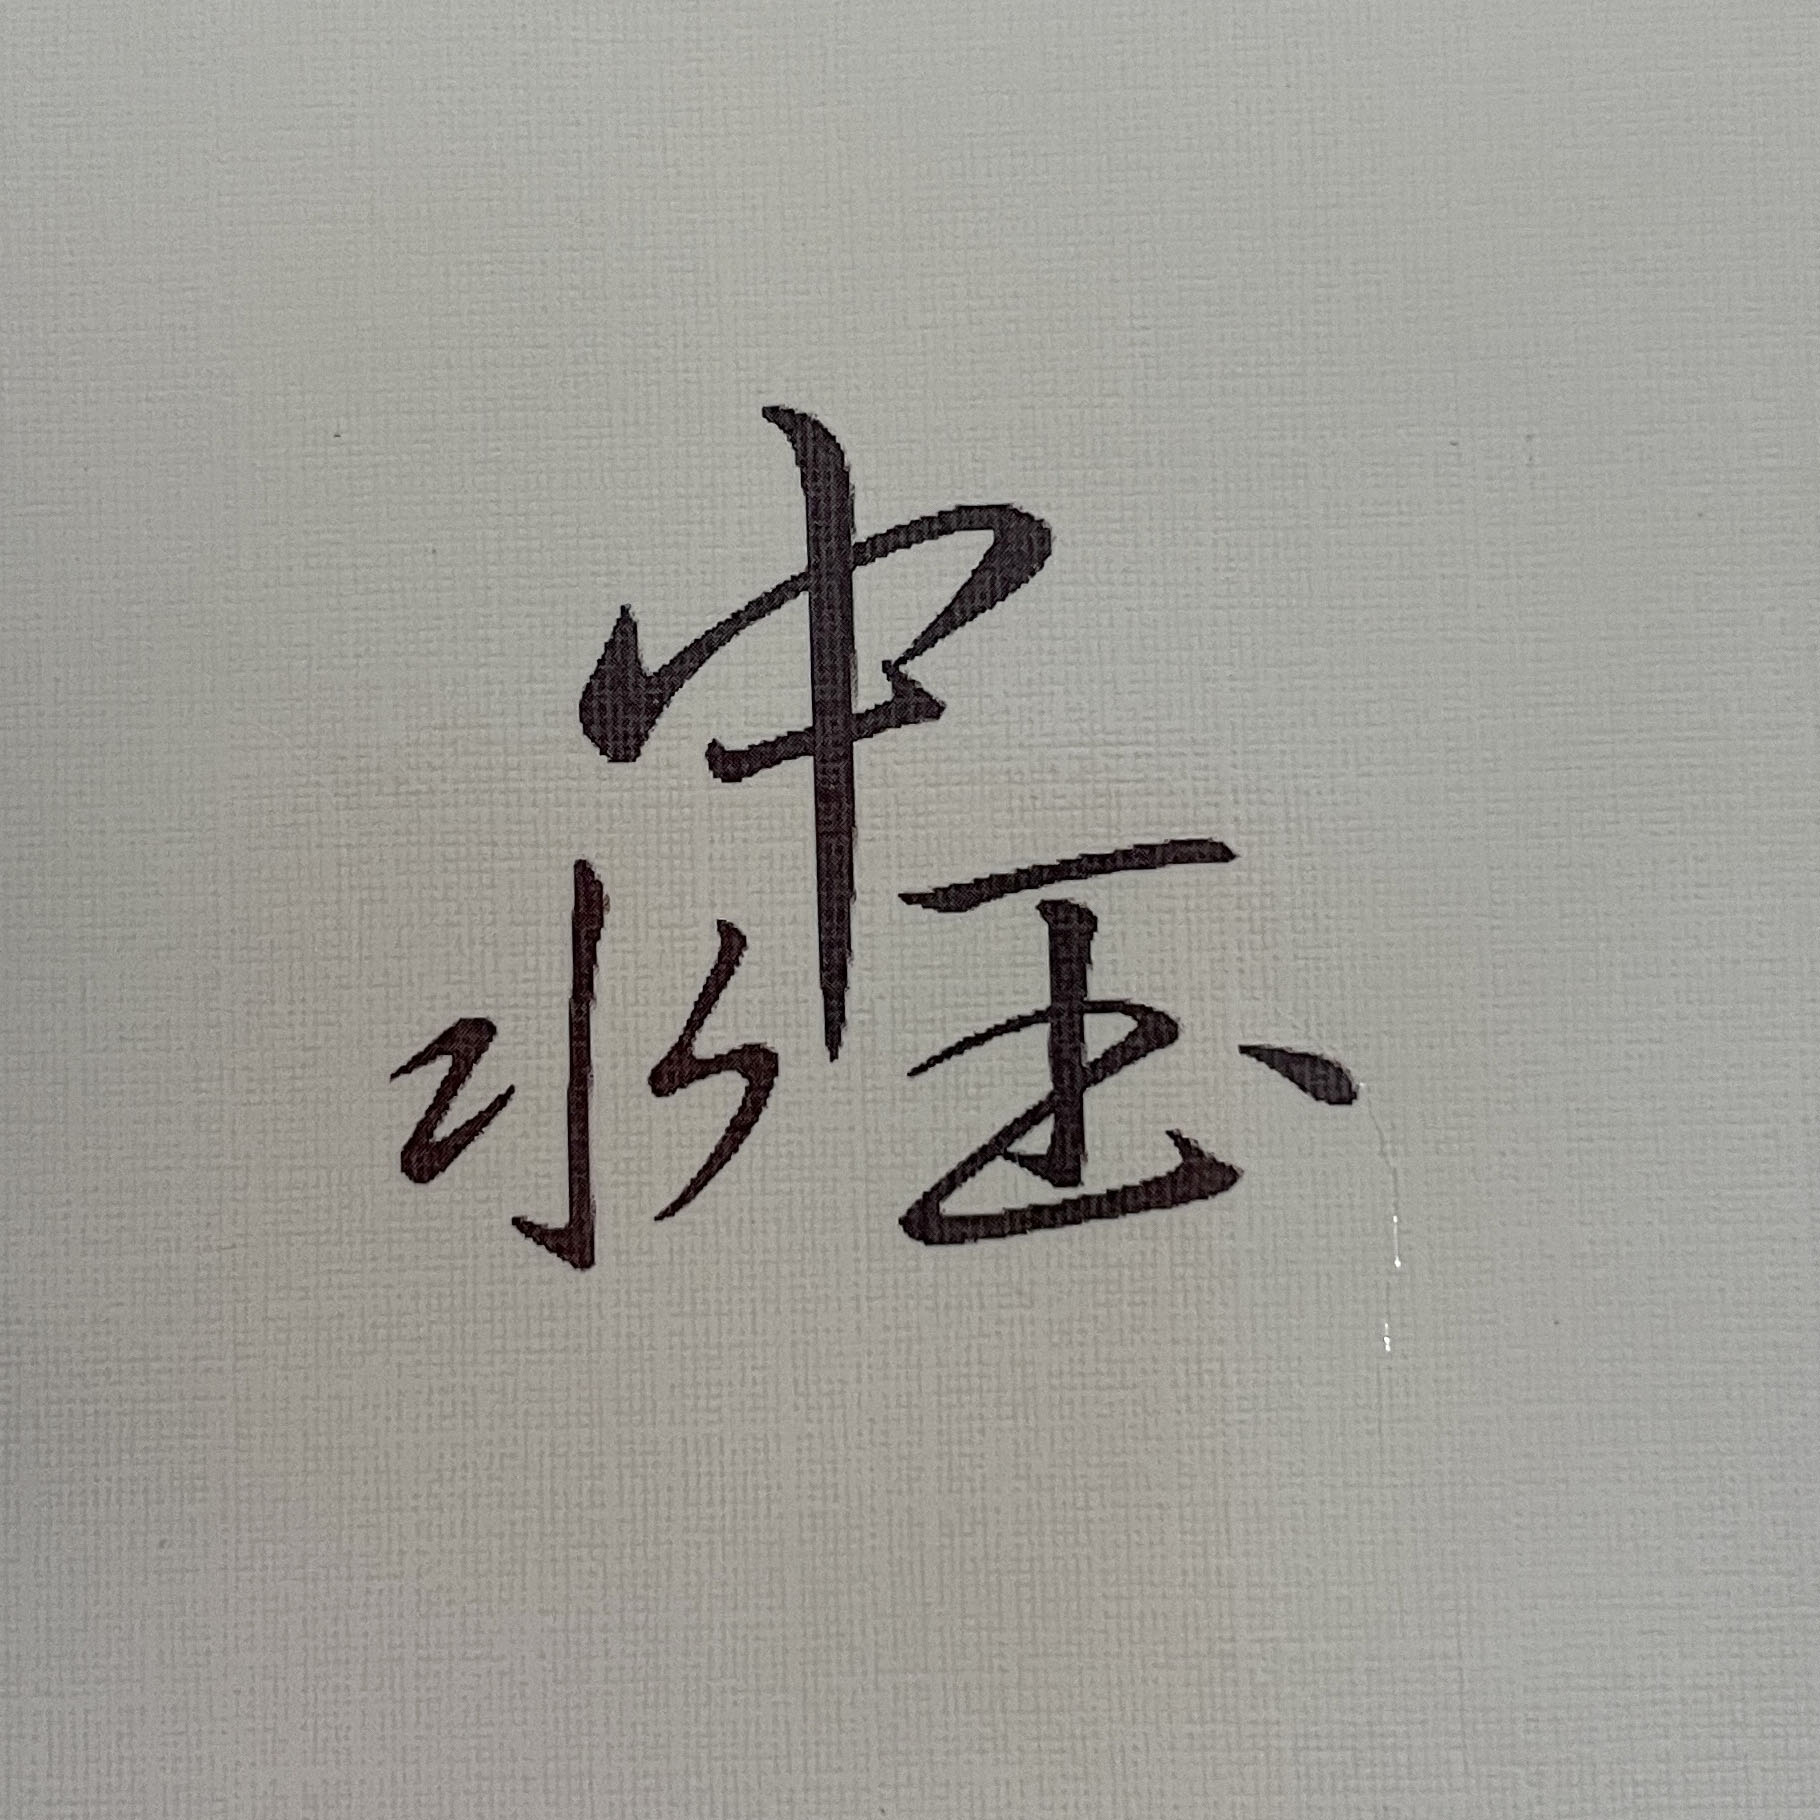 中
水玉